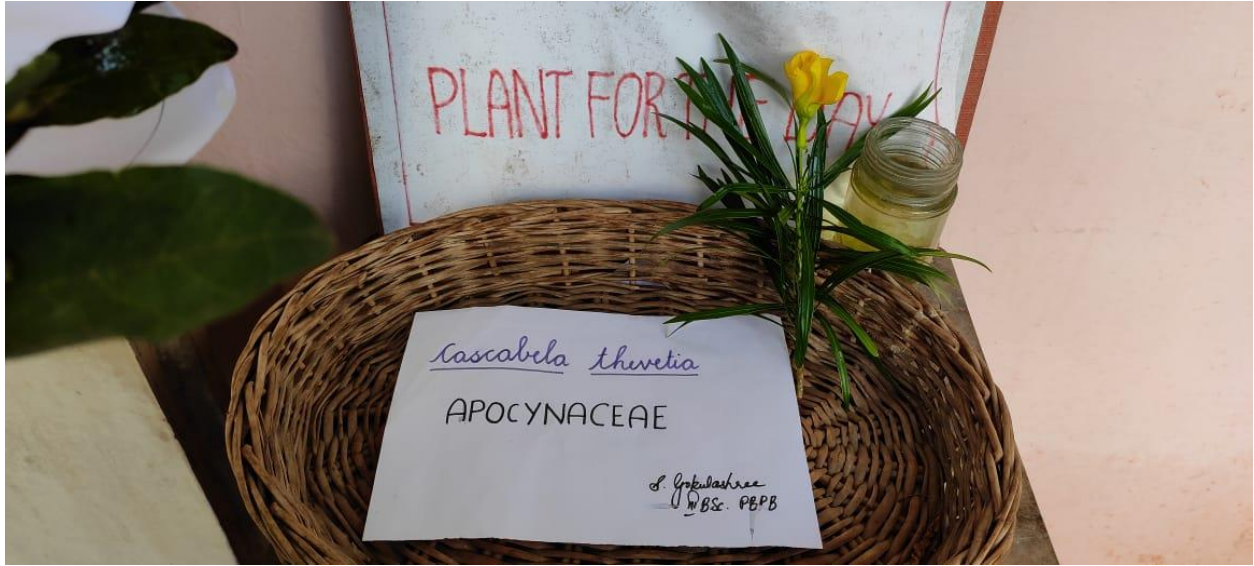 PLANT FOR THE DAY
Cascabela thevetia
APOCYNACEAE
S. Gokulashree
III BSc. PBPB